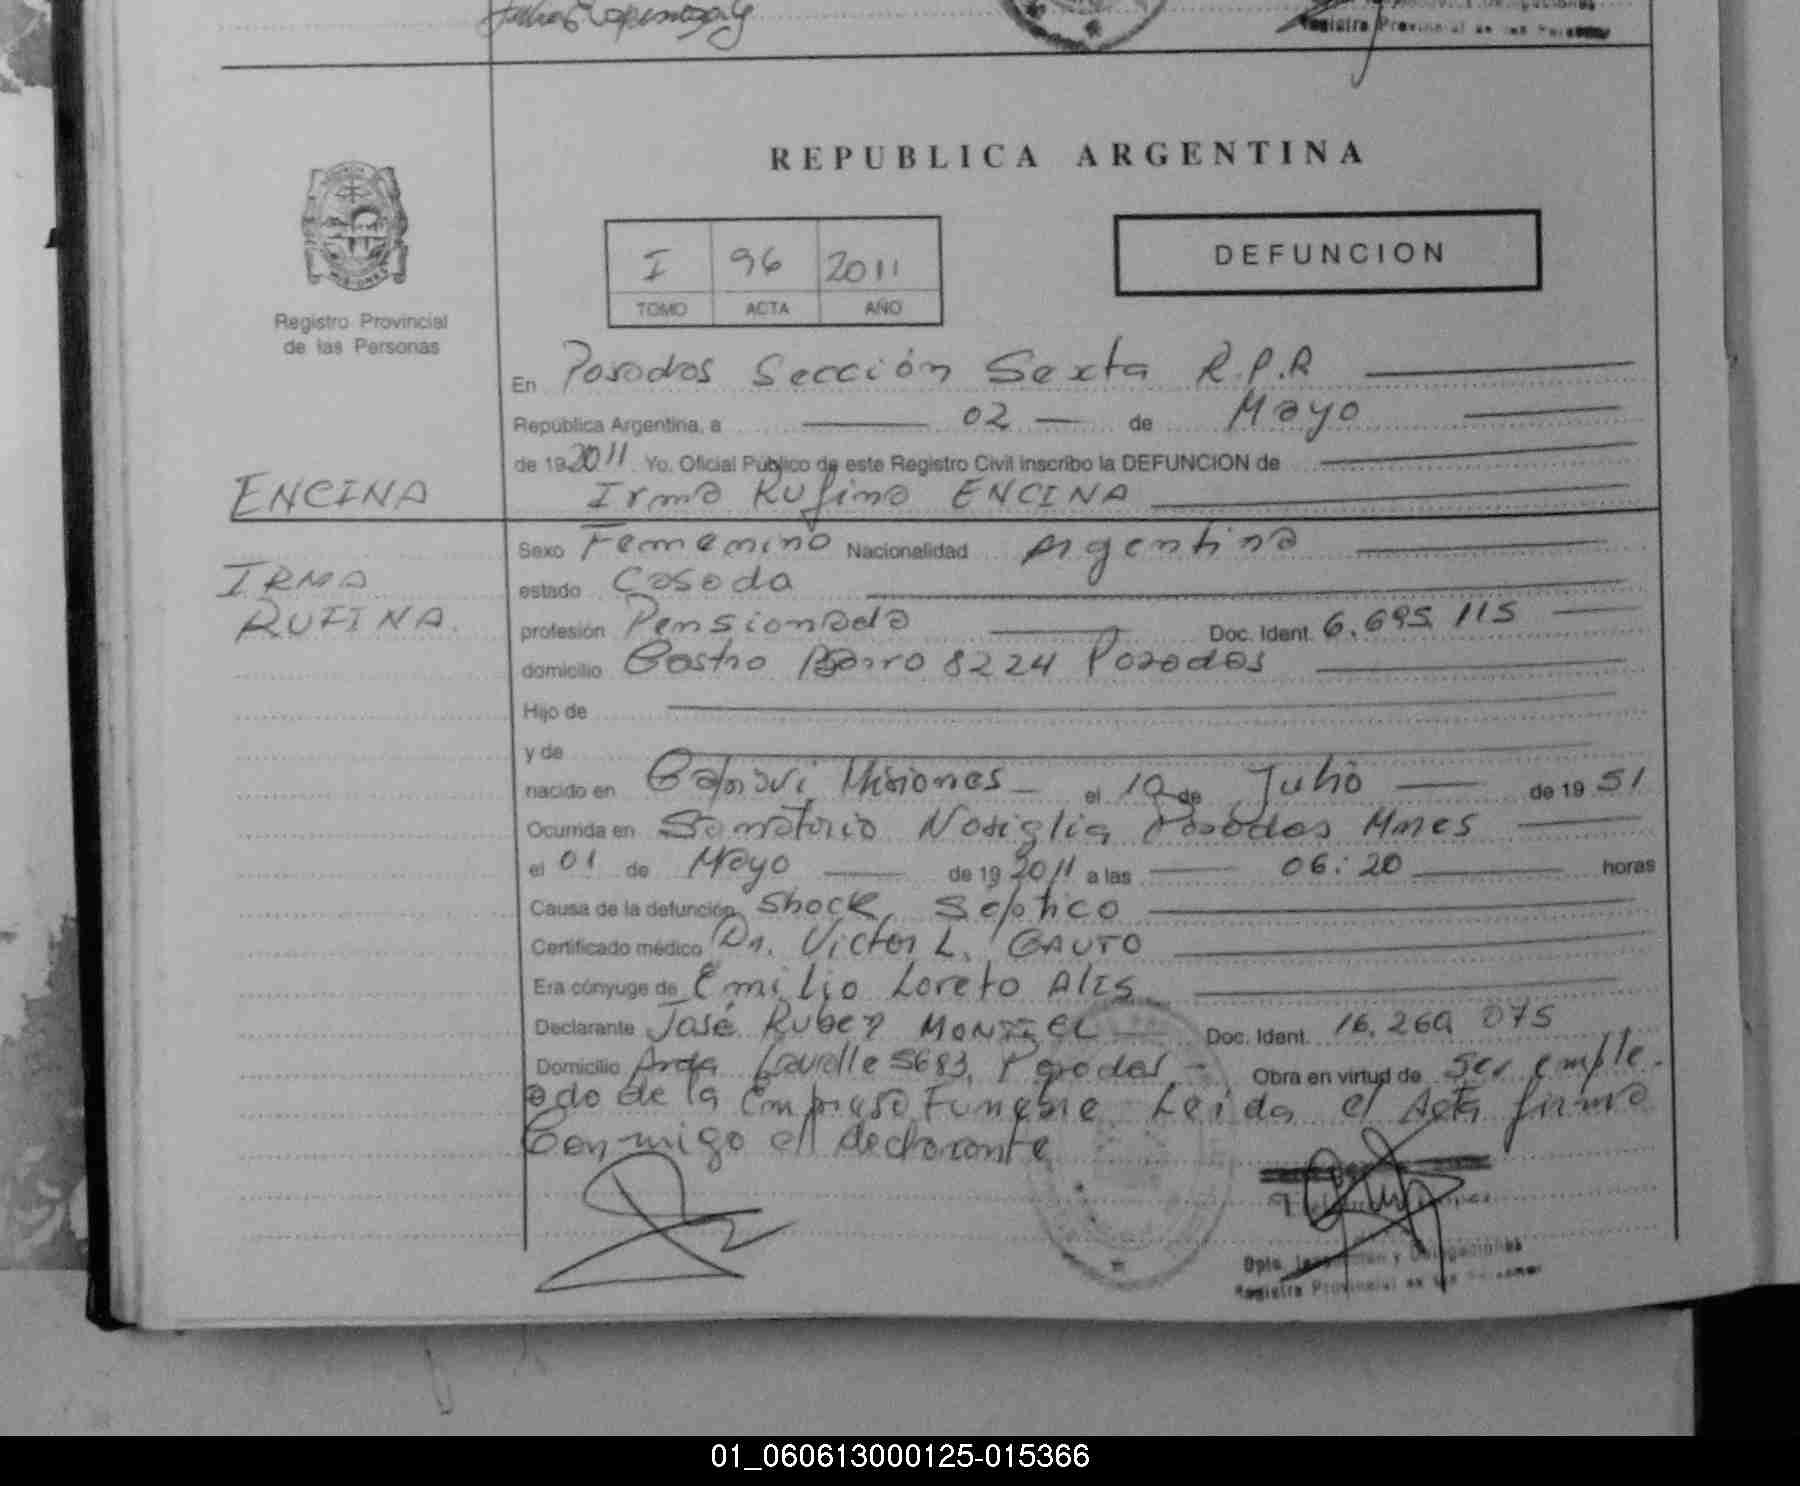 Registro Provincial de las Personas
REPUBLICA ARGENTINA
I 96 2011
TOMO ACTA AÑO
DEFUNCION
Registro Provincial
de las Personas
En Posadas Sección Sexta R.P.R
República Argentina, a 02 de Mayo
de 19 2011 Yo. Oficial Público de este Registro Civil inscribo la DEFUNCION de
ENCINA
Irma Rufina ENCINA
IRMA
RUFINA.
Sexo Femenino Nacionalidad Argentina
estado Casada
profesión Pensionada Doc. Ident. 6.695.115
domicilio Castro Barro 8224 Posadas
Hijo de
y de
nacido en Misiones el de Julio de 19 51
Ocurrida en Sanatorio Nosiglia Posadas Mnes
el 01 de Mayo de 19 2011 a las 06:20 horas
Causa de la defunción Shock Séptico
Certificado médico Dr. Victor L. GAUTO
Era cónyuge de Emilio Loreto
Declarante José Ruben MONTIEL Doc. Ident. 16.269 075
Domicilio Avda Lavalle 5683, Posadas - Obra en virtud de ser emple-
ado de la Empresa Funebre Leida el Acta firma
Conmigo el declarante
Dpto. y Delegaciones
Registro Provincial de las Personas
01_060613000125-015366